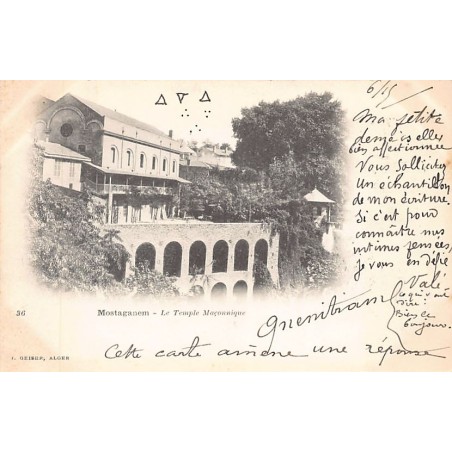 6/15
Ma petite
demoiselle
bien affectionnée
Vous sollicitez
Un échantillon
de mon écriture.
Si c'est pour
connaître mes
intimes pensées,
Je vous en défie
Valé
ce qui veut
dire:
Bien le
bonjour.
36 Mostaganem - Le Temple Maçonnique
Cette carte amène une réponse
J. GEISER, ALGER